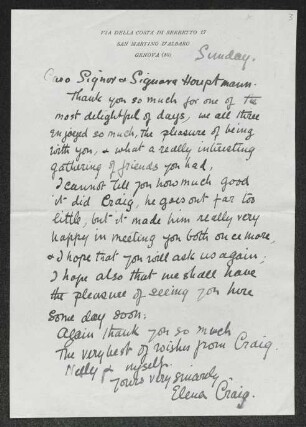 VIA DELLA COSTA DI SERRETTO 17
SAN MARTINO D'ALBARO
GENOVA (16)
Sunday.
Caro Signor & Signora Hauptmann.
Thank you so much for one of the
most delightful of days, we all three
enjoyed so much, the pleasure of being
with you, & what a really interesting
gathering of friends you had,
I cannot tell you how much good
it did Craig, he goes out far too
little, but it made him really very
happy in meeting you both once more,
& I hope that you will ask us again,
I hope also that we shall have
the pleasure of seeing you here
some day soon.
Again thank you so much
The very best of wishes from Craig.
Nelly & myself.
Yours very sincerely
Elena Craig.
3